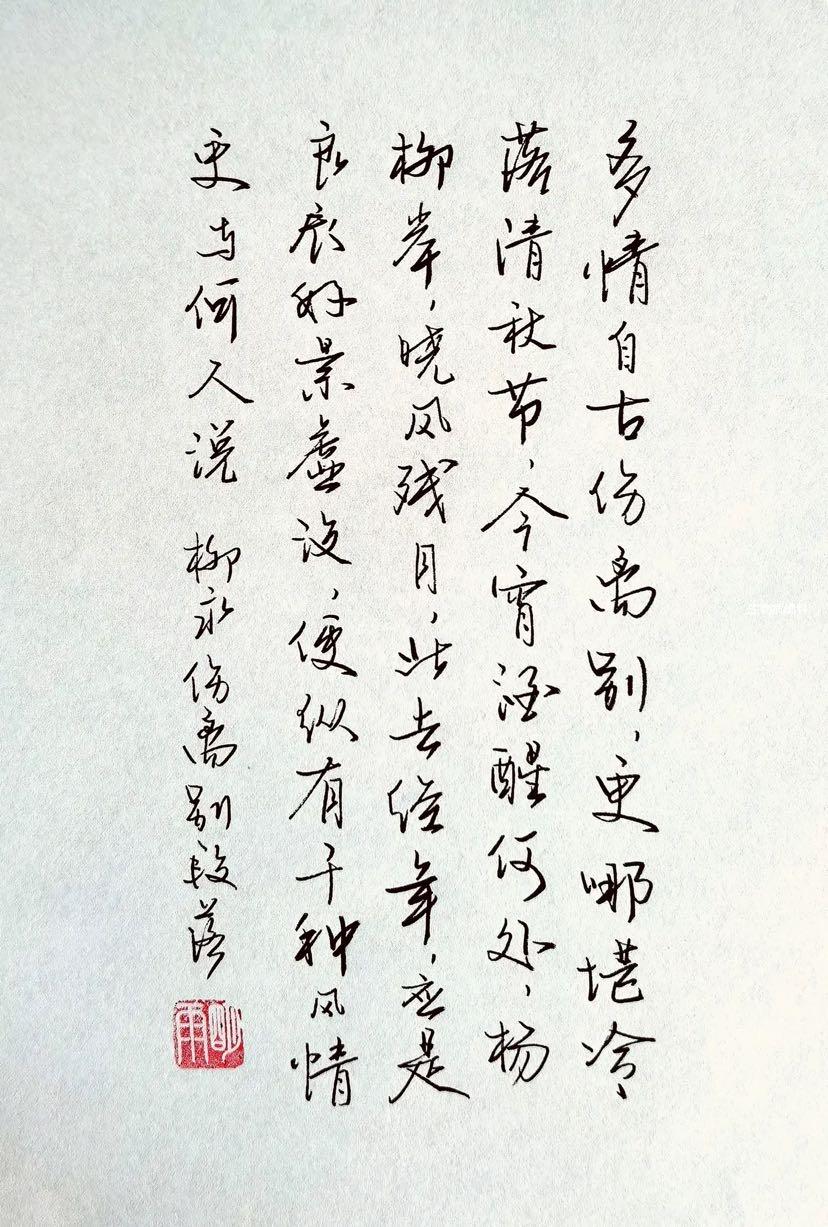 多情自古伤离别，更哪堪冷
落清秋节，今宵酒醒何处，杨
柳岸，晓风残月，此去经年，应是
良辰好景虚设，便纵有千种风情
更与何人说 柳永伤离别段落